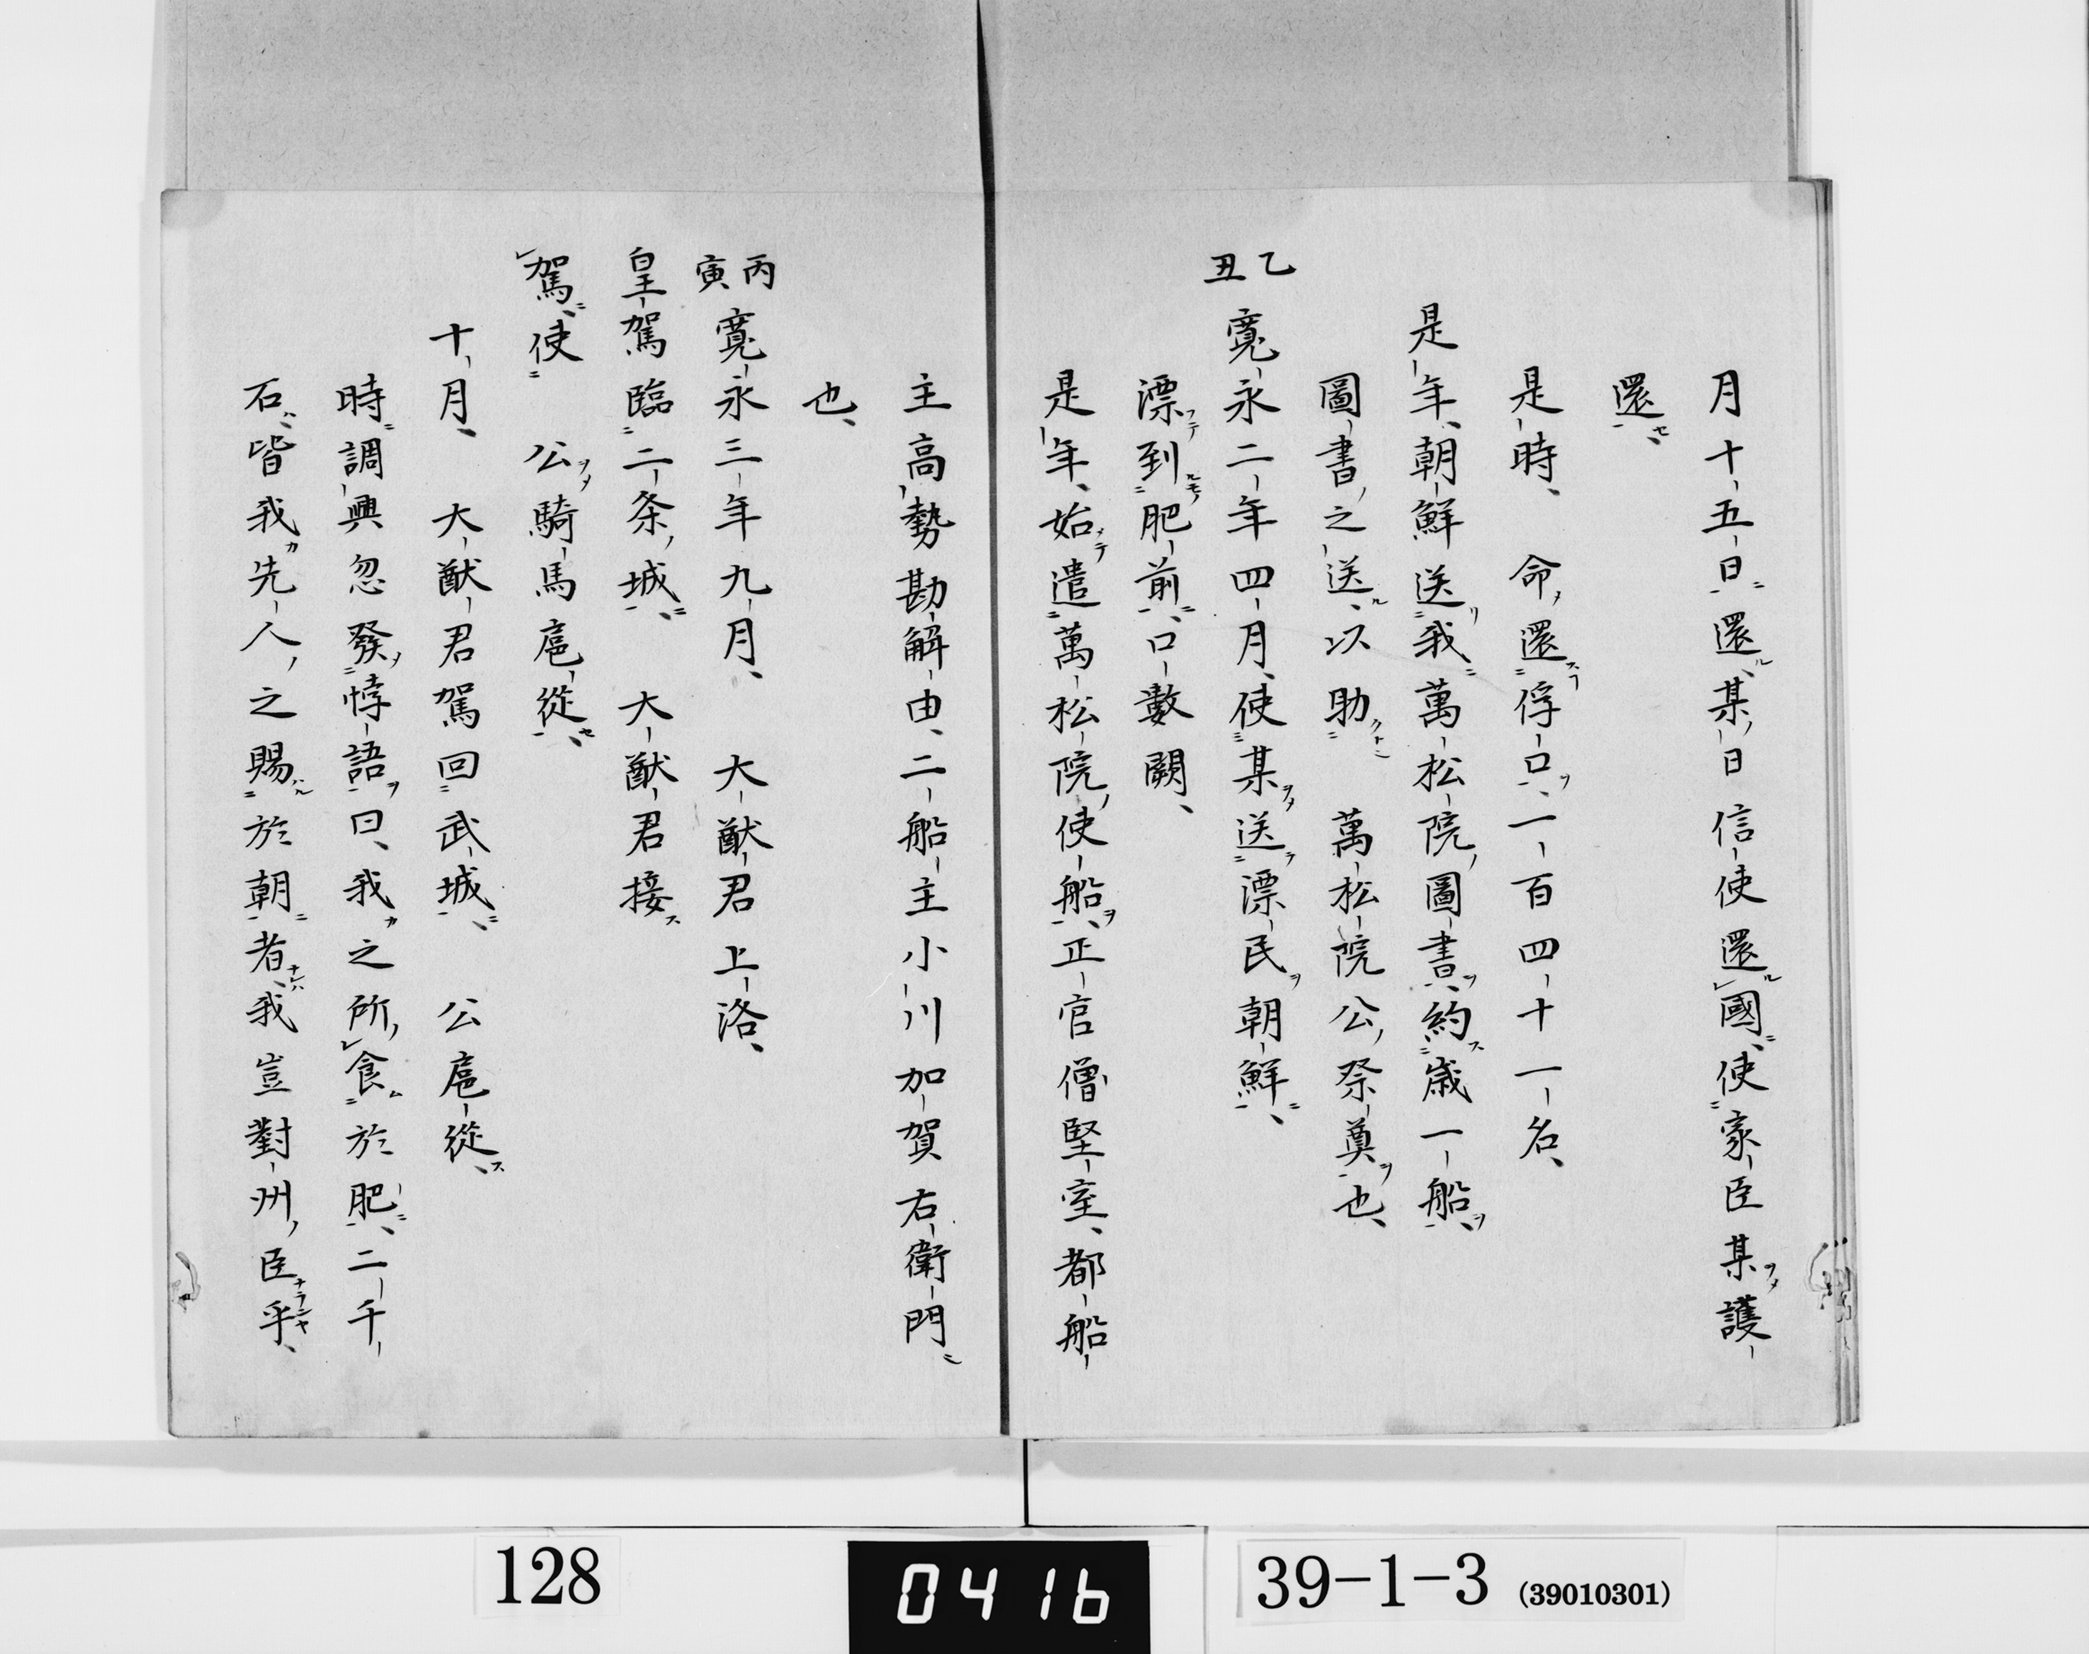 月十五日還某日信使還國使家臣某護
還
是時　命還俘口一百四十一名
是年朝鮮送我萬松院圖書約歳一船
圖書之送以助　萬松院公祭奠也
乙丑
寛永二年四月使某送漂民朝鮮
漂到肥前口數闕
是年始遣萬松院使船正官僧堅室都船
主高勢勘解由二船主小川加賀右衛門
也
丙寅
寛永三年九月　大猷君上洛
皇駕臨二条城　大猷君接
駕使　公騎馬扈從
十月　大猷君駕回武城　公扈從
時調興忽發悖語曰我之所食於肥二千
石皆我先人之賜於朝者我豈對州臣乎
128
0416
39-1-3 (39010301)